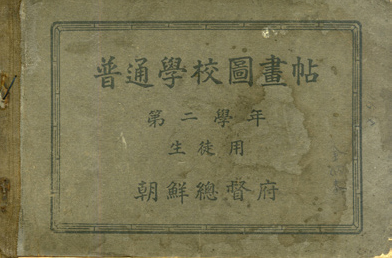 普通學校圖畫帖
第二學年
生徒用
朝鮮總督府